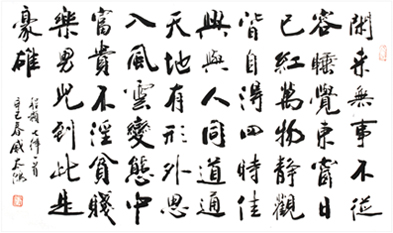 閑来無事不從
容睡覺東窗日
已紅萬物靜觀
皆自得四時佳
興與人同道通
天地有形外思
入風雲變態中
富貴不淫貧賤
樂男兒到此是
豪雄
程顥七律一首
辛巳春